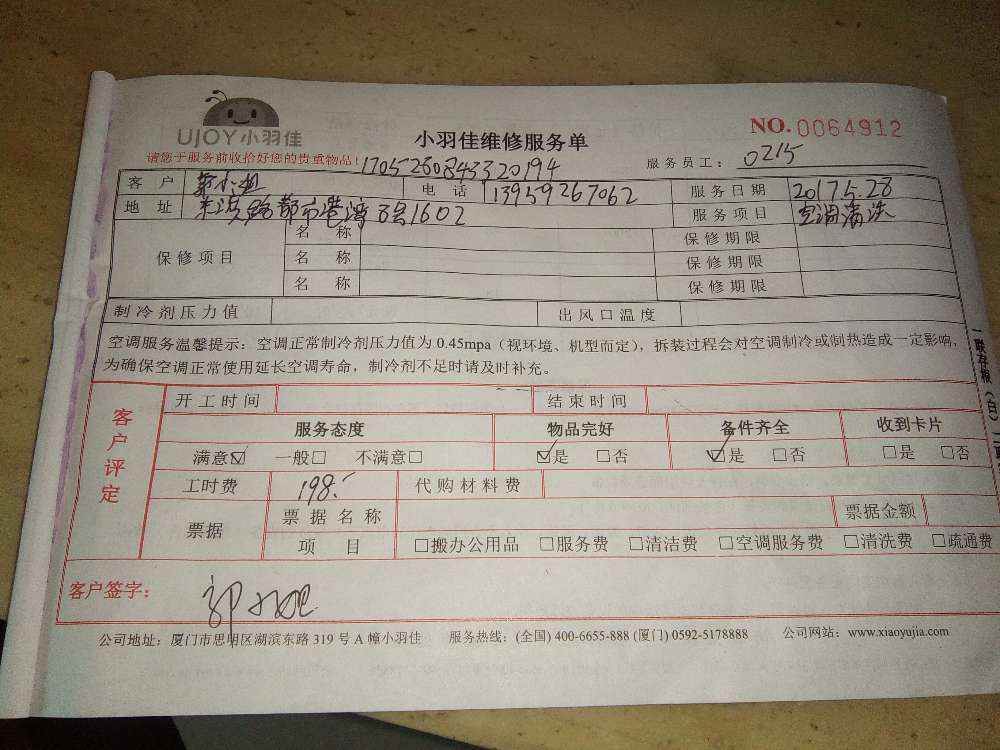 UJOY小羽佳
小羽佳维修服务单
NO.0064912
请您于服务前收拾好您的贵重物品!
17052808453320194
服务员工: 0215
客户 小姐 电话 13959267062 服务日期 2017.5.28
地址 都市港湾 号1602 服务项目 空调清洗
保修项目 名称 保修期限
名称 保修期限
名称 保修期限
制冷剂压力值 出风口温度
空调服务温馨提示:空调正常制冷剂压力值为0.45mpa(视环境、机型而定),拆装过程会对空调制冷或制热造成一定影响,
为确保空调正常使用延长空调寿命,制冷剂不足时请及时补充。
客户评定
开工时间 结束时间
服务态度 物品完好 备件齐全 收到卡片
满意☑ 一般□ 不满意□ ☑是 □否 ☑是 □否 □是 □否
工时费 198.- 代购材料费
票据 票据名称 票据金额
项目 □搬办公用品 □服务费 □清洁费 □空调服务费 □清洗费 □疏通费
客户签字: 郭
公司地址:厦门市思明区湖滨东路319号A幢小羽佳 服务热线:(全国)400-6655-888(厦门)0592-5178888 公司网站:www.xiaoyujia.com
一联存根(白)